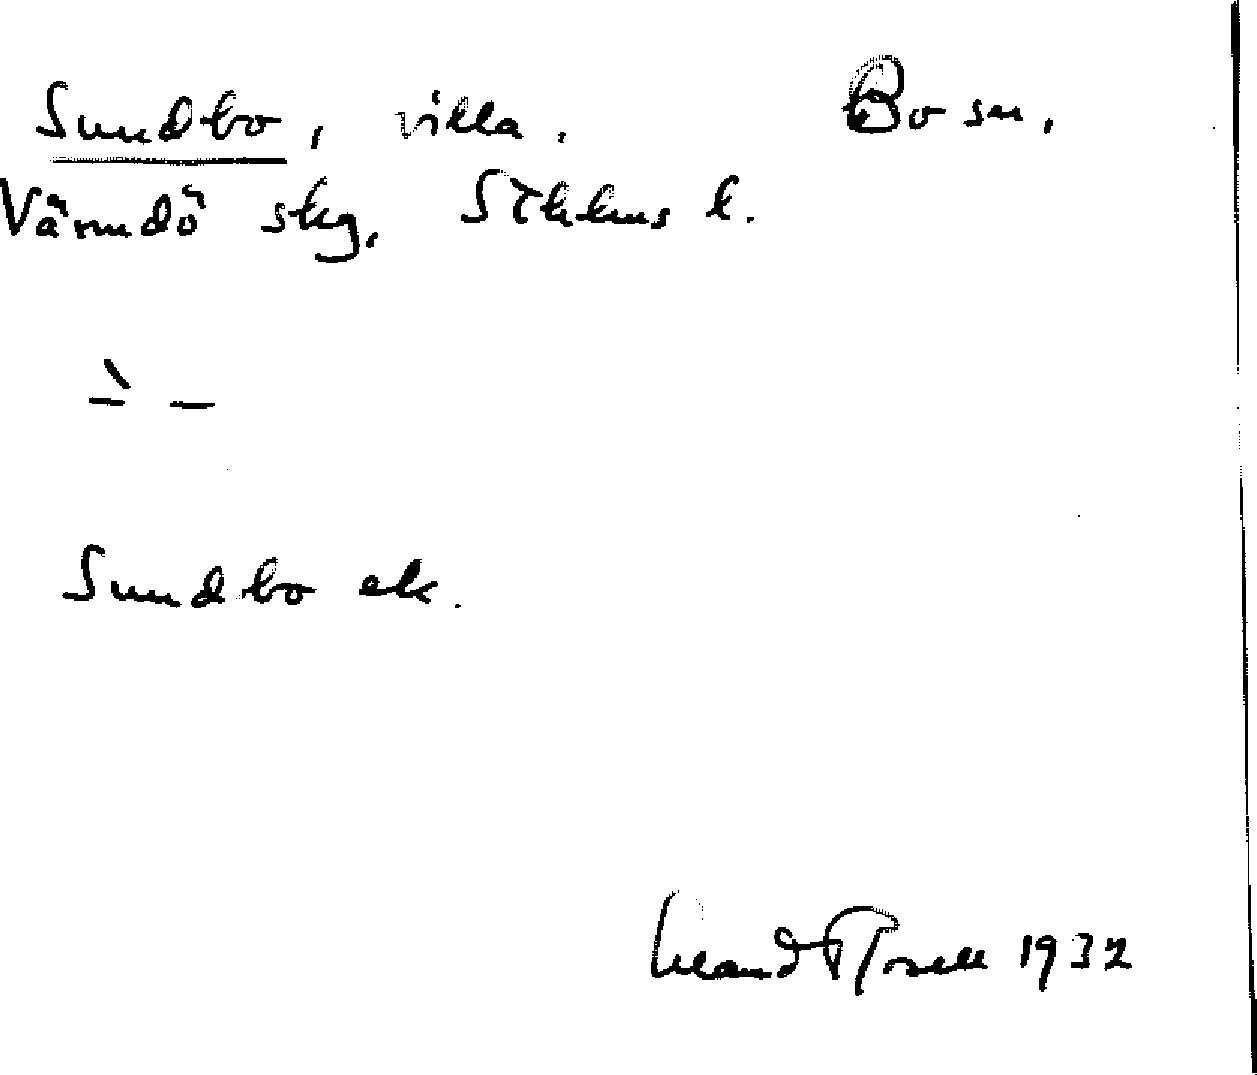 Sundbo, villa. Bo sn.
Värmdö skg, Sthlms l.
Sundbo ek.
1932